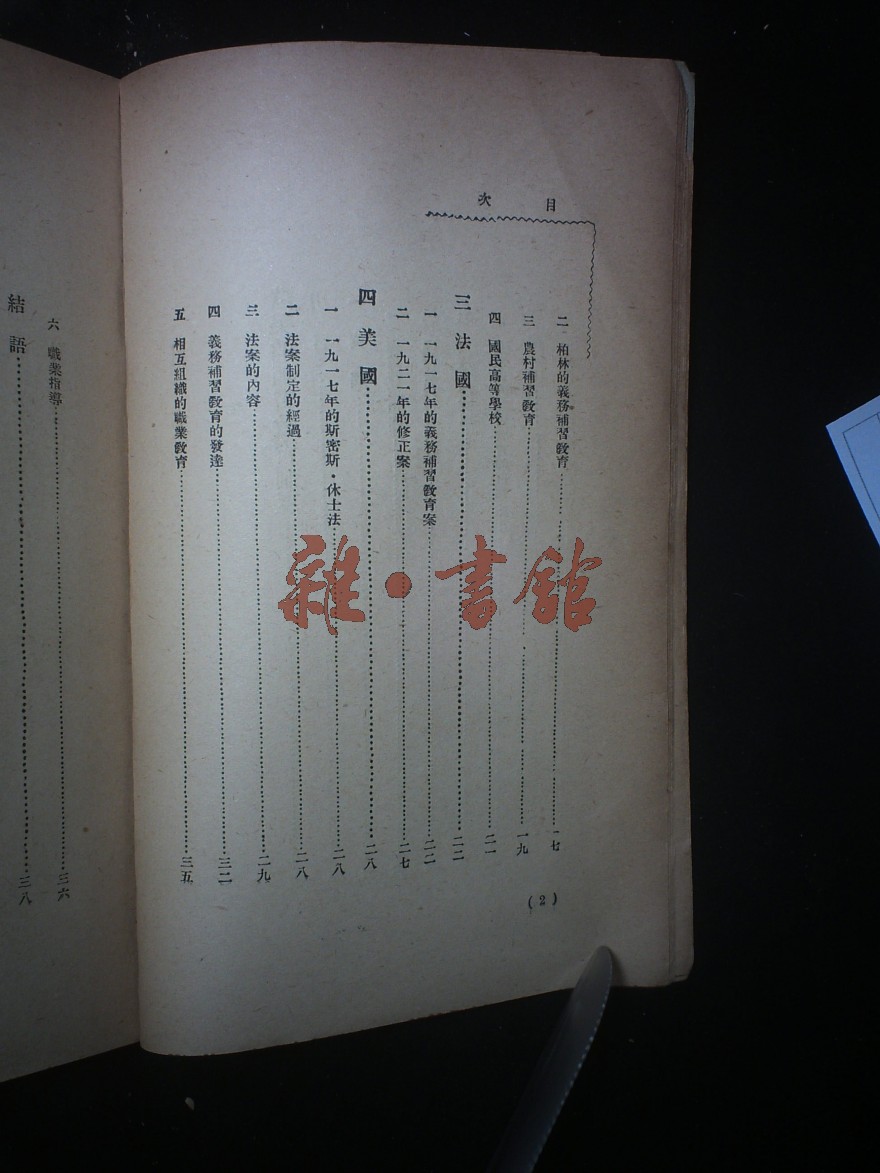 目次
二 柏林的義務補習教育……一七
三 農村補習教育……一九
四 國民高等學校……二一
三 法國……二二
一 一九一七年的義務補習教育案……二二
二 一九二一年的修正案……二七
四 美國……二八
一 一九一七年的斯密斯·休士法……二八
二 法案制定的經過……二八
三 法案的內容……二九
四 義務補習教育的發達……三二
五 相互組織的職業教育……三五
(2)
六 職業指導……三六
結語……三八
雜·書館